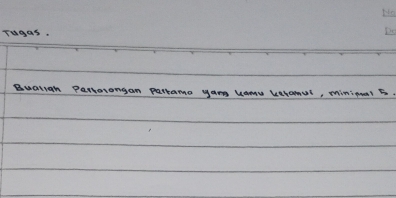 No
Da
Tugas.
Buatlah Pertolongan Pertama yang kamu ketahui, minimal 5.